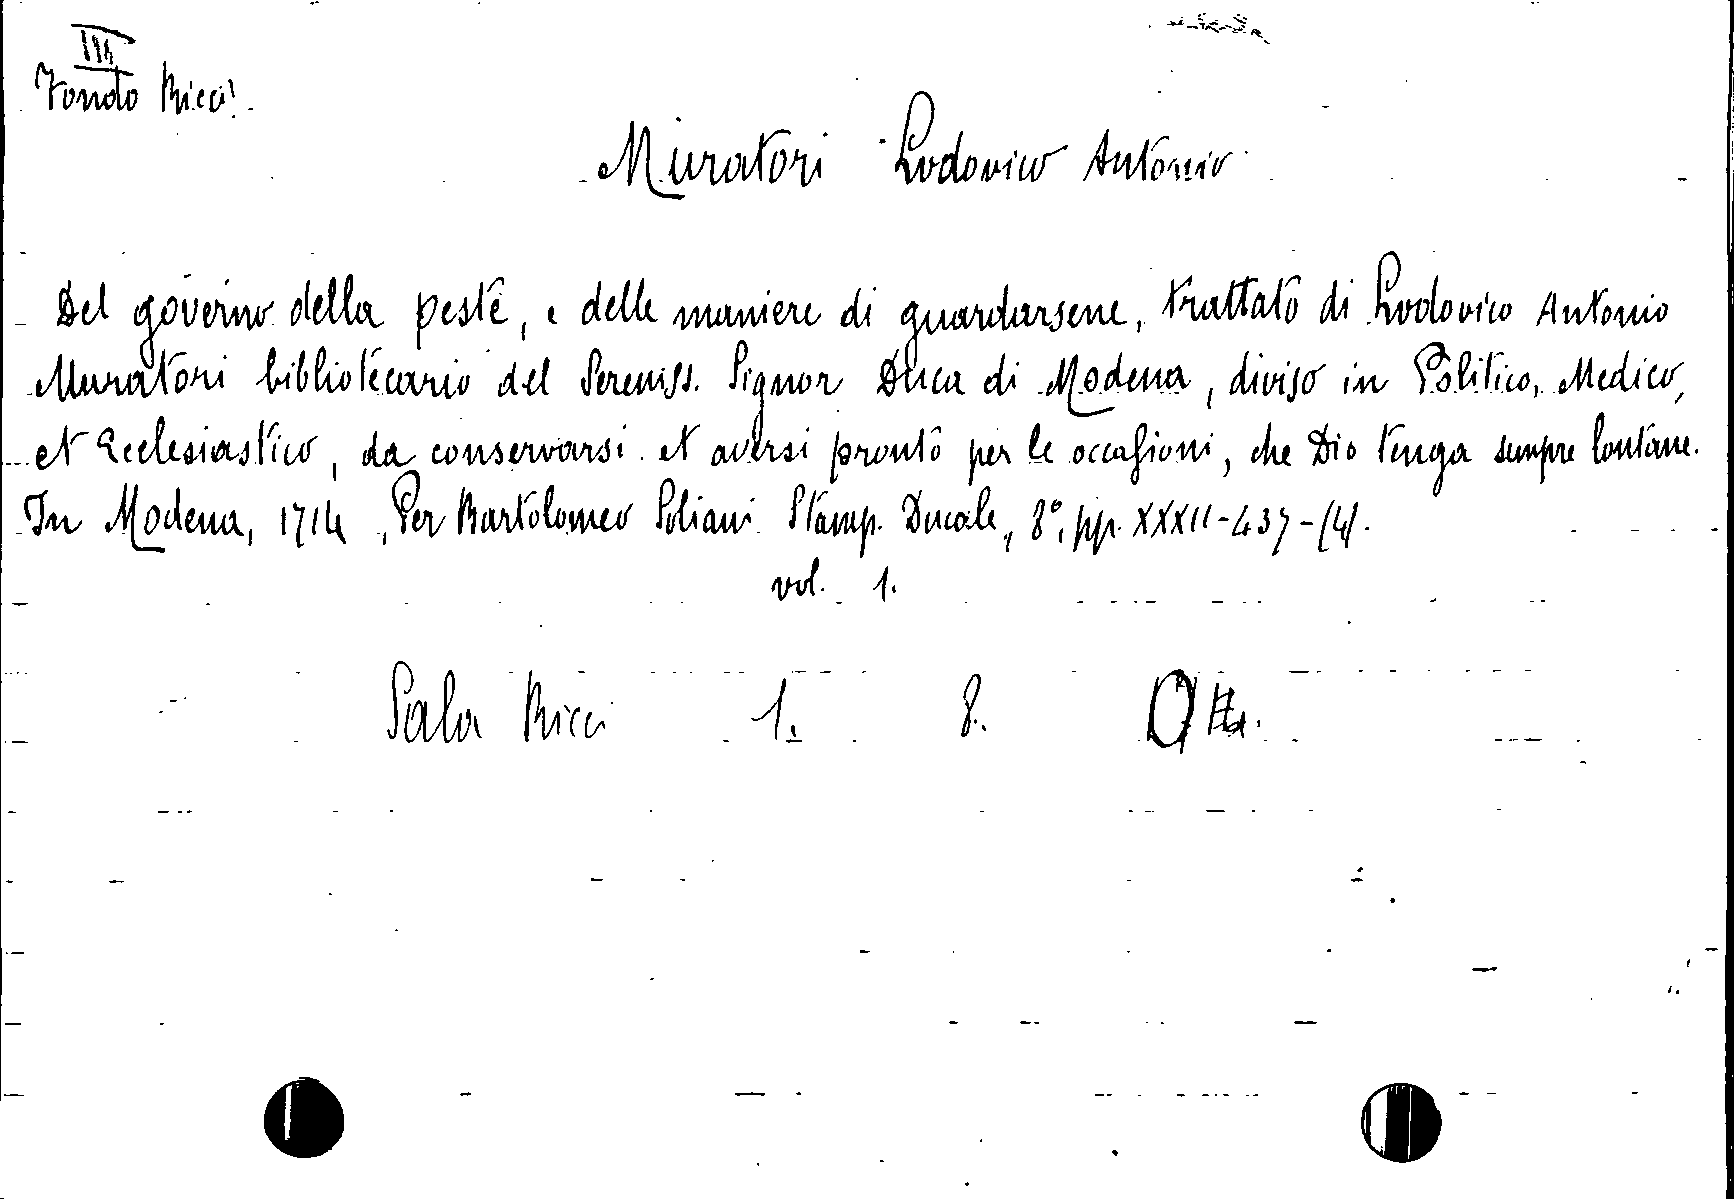 III
Fondo Ricci
Muratori Lodovico Antonio
Del governo della peste, e delle maniere di guardarsene, trattato di Lodovico Antonio
Muratori bibliotecario del Sereniss. Signor Duca di Modena, diviso in Politico, Medico,
et Ecclesiastico, da conservarsi et aversi pronto per le occasioni, che Dio tenga sempre lontane.
In Modena, 1714, Per Bartolomeo Soliani Stamp. Ducale, 8°, pp. XXXII-437-(4).
vol. 1.
Sala Ricci 1. 8.